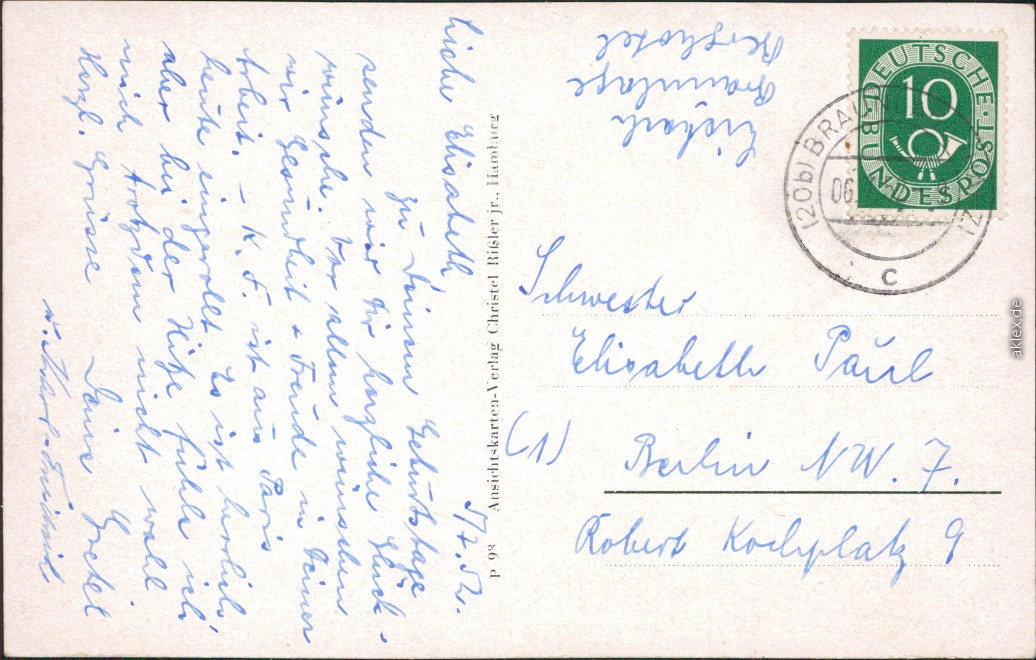 5/7.52.
Liebe Elisabeth
zu Deinem Geburtstage
senden wir Dir herzliche Glück-
wünsche. Vor allem wünschen
wir Gesundheit + Freude in Deiner
Arbeit. – K. F. ist aus Paris
heute eingerollt. Es ist herrlich,
aber bei der Hitze fühle ich
mich trotzdem nicht wohl
Herzl. Grüsse Deine Gretel
u. Karl-Friedrich
p 98 Ansichtskarten-Verlag Christel Rißler jr., Hamburg
Braunlage
Berghotel
DEUTSCHE BUNDESPOST
10
(20b) BRAU
06.
c
Schwester
Elisabeth Paul
(1) Berlin NW. 7.
Robert Kochplatz 9
aklex.de